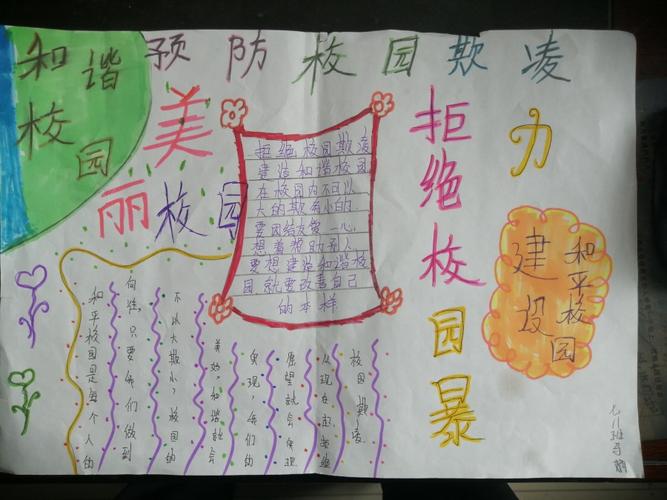 和谐
校园
预防校园欺凌
美
丽校园
拒绝校园暴
力
拒绝校园欺凌
建造和谐校园
在校园内不可以
大的欺负小的
要团结友爱一心,
想着帮助别人,
要想建造和谐校
园就要改善自己
的本样
建设
和平校园
校园欺凌,
从现在起拒绝
愿望就会实现
实现,我们的
美好,和谐就会
不以大欺小,校园的
向往,只要我们做到
和平校园是每个人的